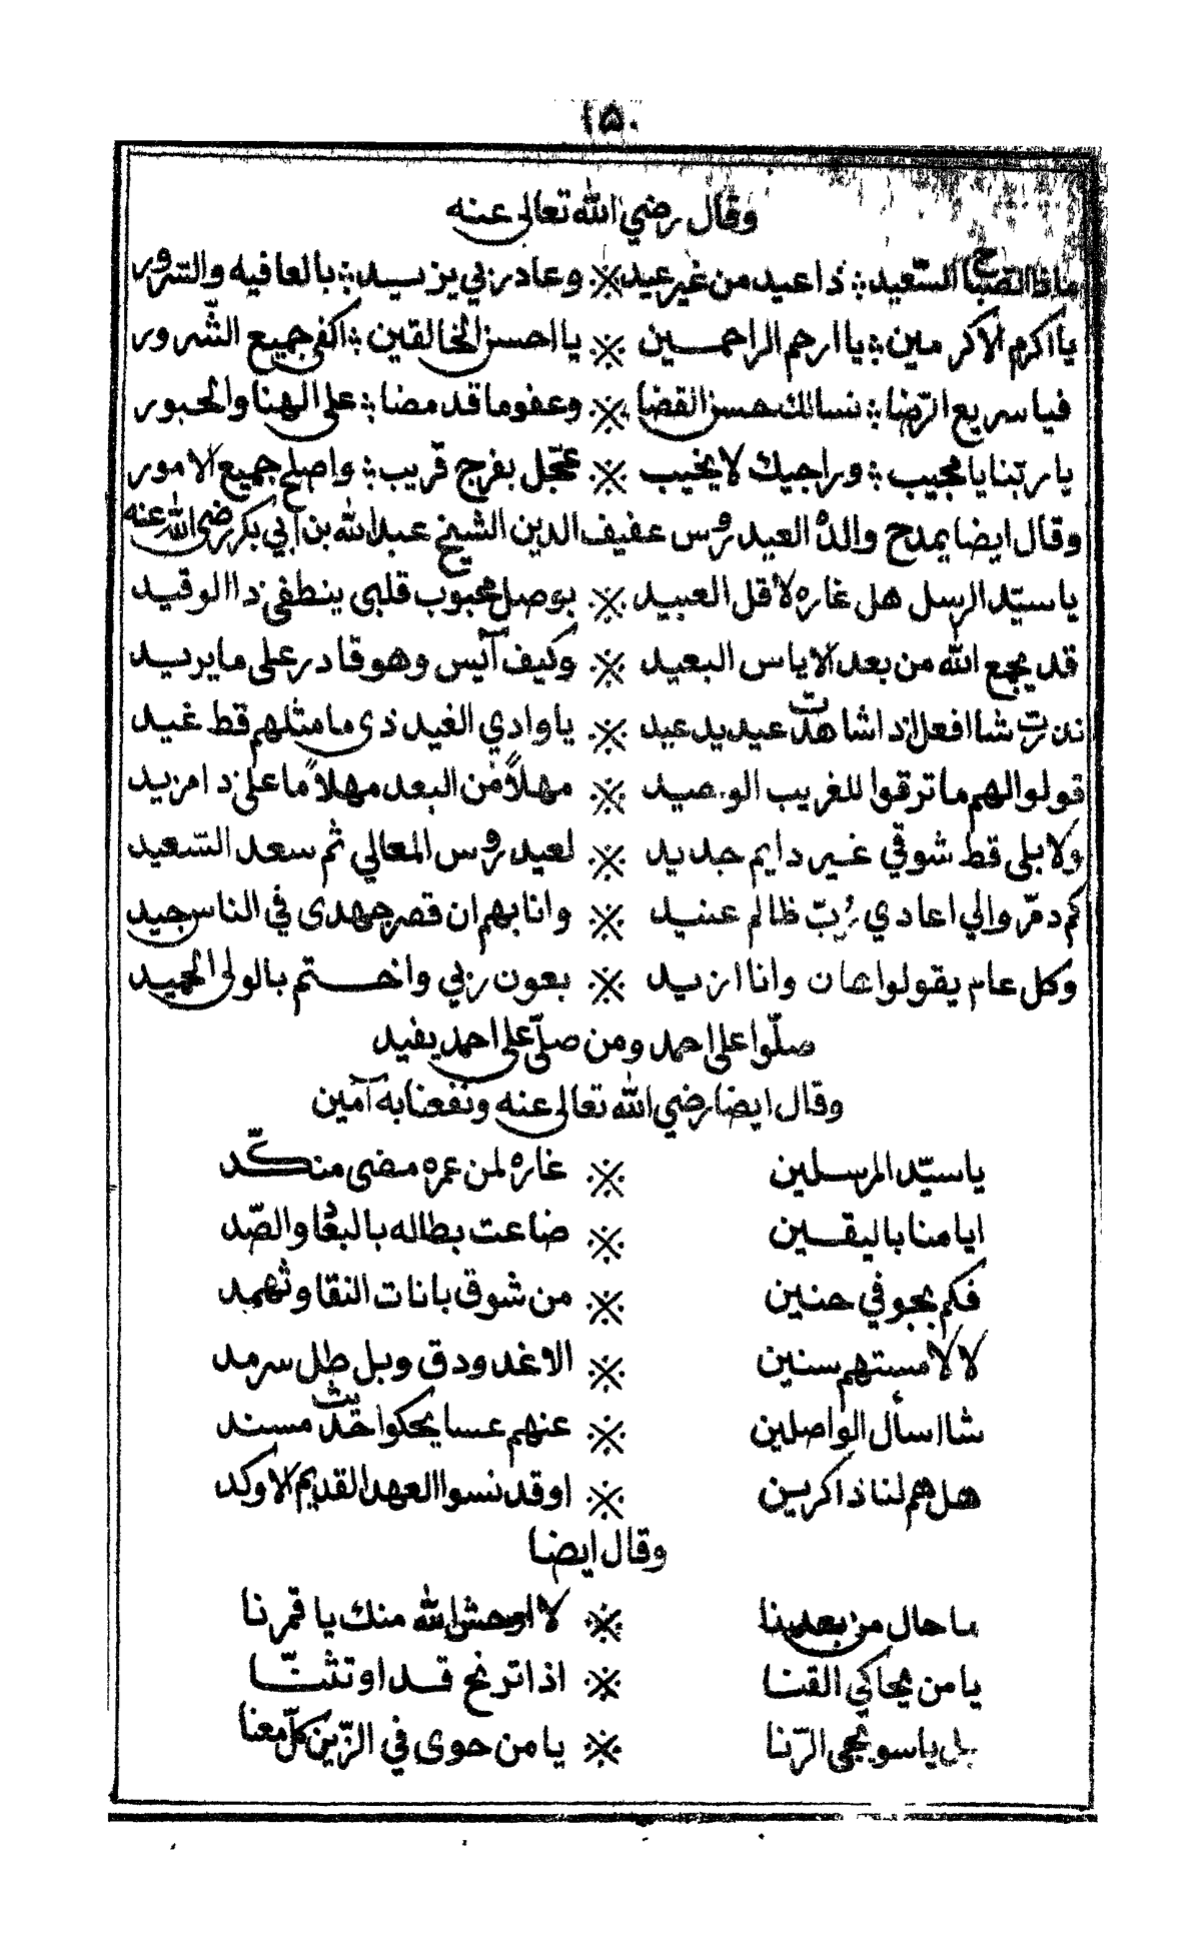 ١٥٠
وقال رضي الله تعالى عنه
ماذا الصباح السّعيد ؞ ذا عيد من غير عيد ※ وعاد ربي يزيد ؞ بالعافيه والسّرور
يا اكرم الاكرمين ؞ يا ارحم الراحمين ※ يا احسن الخالقين ؞ اكفي جميع الشّرور
فيا سريع الرّضا ؞ نسالك حسن القضا ※ وعفو ما قد مضا ؞ على الهنا والحبور
يا ربّنا يا مجيب ؞ وراجيك لا يخيب ※ عجّل بفرج قريب ؞ واصلح جميع الامور
وقال ايضا يمدح والده العيدروس عفيف الدين الشيخ عبدالله بن ابي بكر رضي الله عنه
يا سيّد الرسل هل غاره لاقل العبيد ※ بوصل محبوب قلبى ينطفى ذا الوقيد
قد يجمع الله من بعد الاياس البعيد ※ وكيف آيس وهو قادر على ما يريد
شا افعل اذا شاهدت عيديد عيد ※ يا وادي الغيد ذى ما مثلهم قط غيد
قولوا لهم ما ترقوا للغريب الوحيد ※ مهلاً من البعد مهلاً ما على ذا مزيد
ولا بلى قط شوقي غير دايم جديد ※ لعيدروس المعالي ثم سعد السّعيد
كم دمّر والي اعادي ربّ ظالم عنيد ※ وانا بهم ان قصر جهدى في الناس جيد
وكل عام يقولوا عان وانا ازيد ※ بعون ربي واختم بالولى الحميد
صلّوا على احمد ومن صلّى على احمد يفيد
وقال ايضا رضي الله تعالى عنه ونفعنا به آمين
يا سيّد المرسلين ※ غاره لمن عمره مضى منكّد
ايامنا باليقين ※ ضاعت بطاله بالبعاد والصّد
فكم بجوفي حنين ※ من شوق بانات النقا وثهمد
لا لا مستهم سنين ※ الا غدودق وبل طل سرمد
شا اسأل الواصلين ※ عنهم عسا يحكوا حديث مسند
هل هم لنا ذاكرين ※ او قد نسوا العهد القديم الاوكد
وقال ايضا
ما حال من بعدينا ※ لا اوحش الله منك يا قمرنا
يا من يحاكي القنا ※ اذا ترنح قد او تثنّا
بل يا سويجى الرّنا ※ يا من حوى في الزّين كلّ معنا